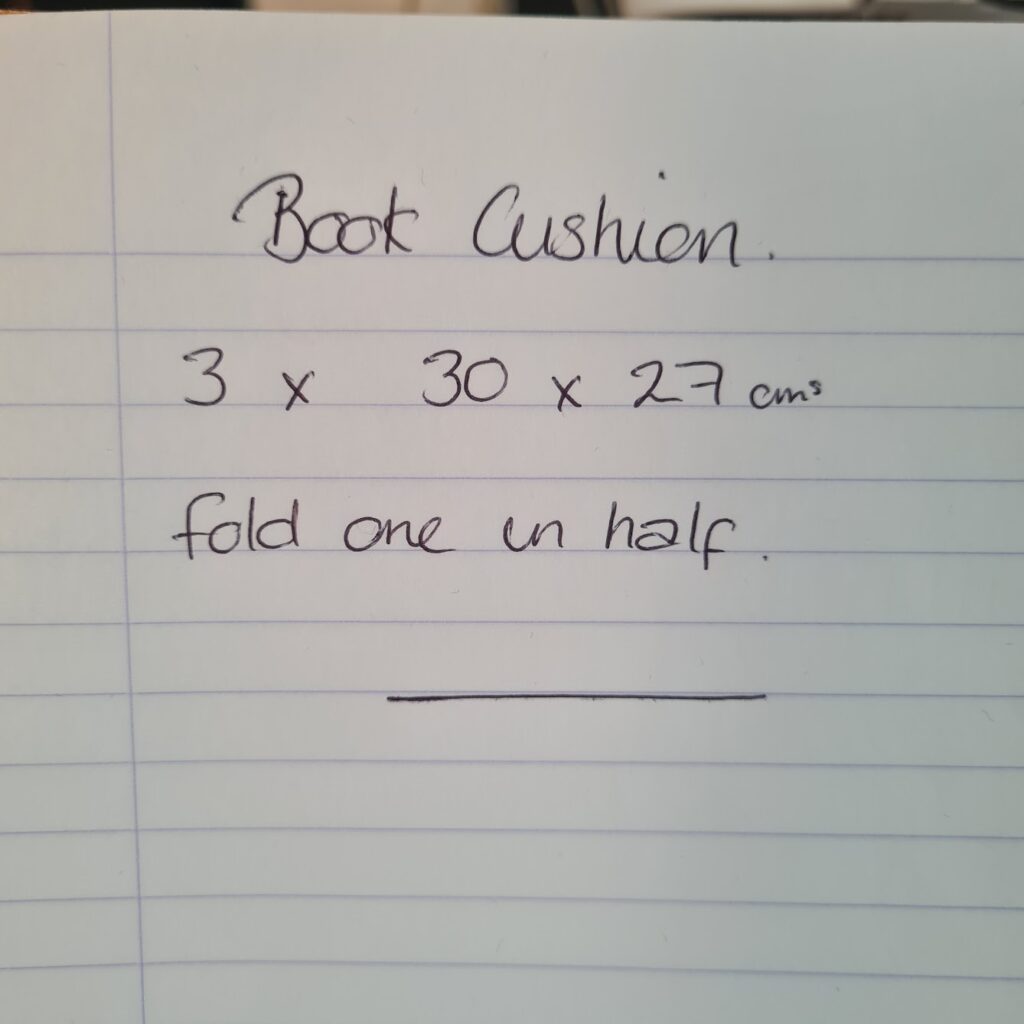 Book Cushion.
3 x 30 x 27 cms
fold one in half.